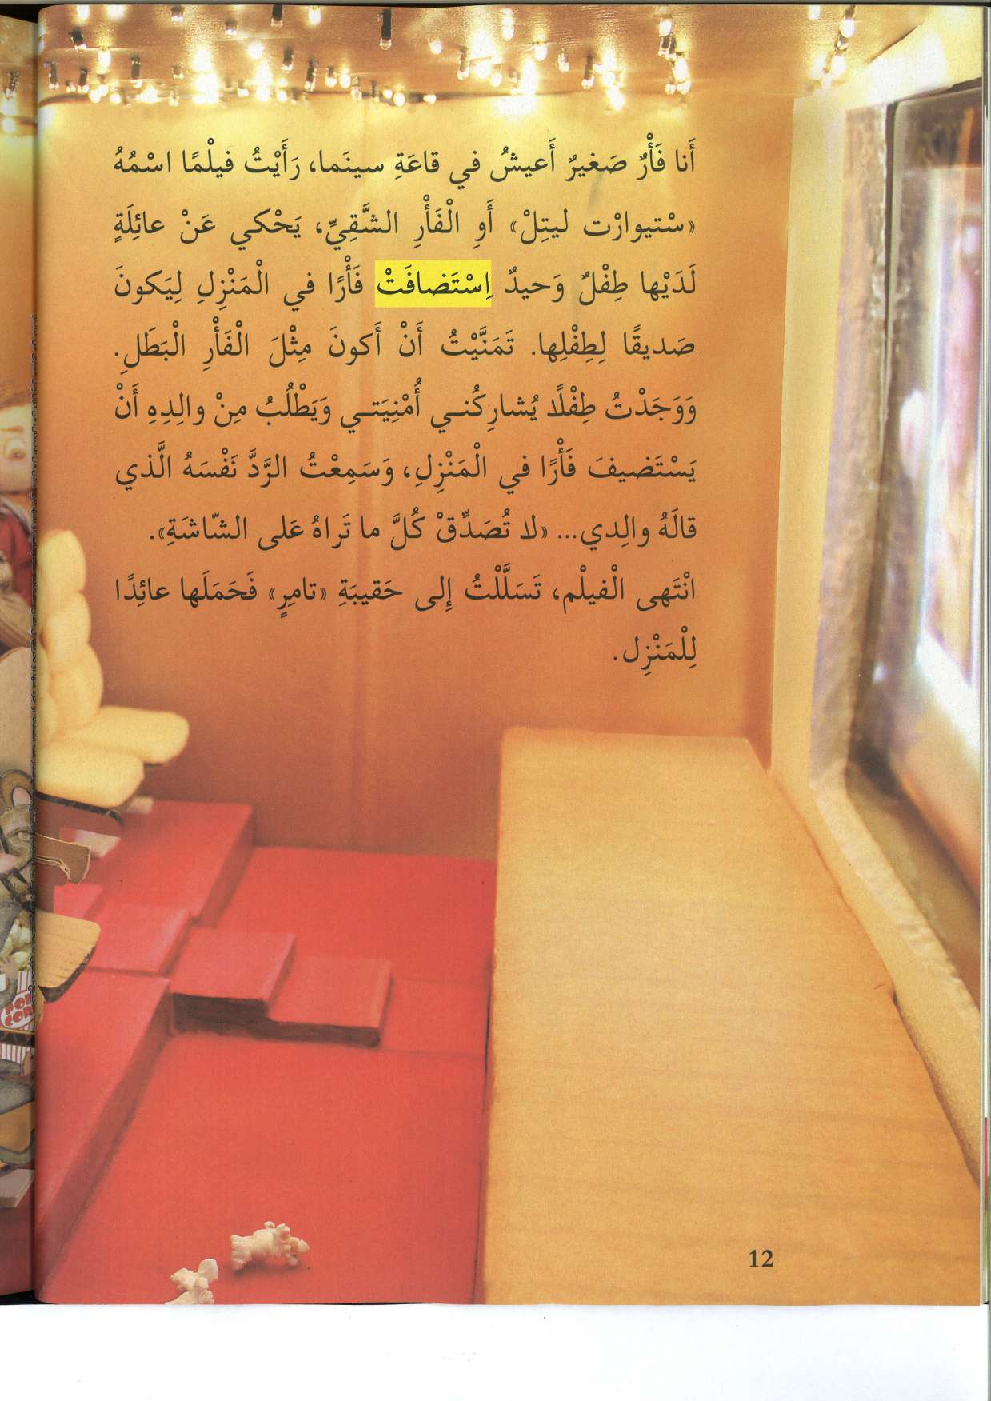 أَنا فَأْرٌ صَغيرٌ أَعيشُ في قاعَةِ سينَما، رَأَيْتُ فيلْمًا اسْمُهُ
«سْتيوارْت ليتِلْ» أَوِ الْفَأْرِ الشَّقِيِّ، يَحْكي عَنْ عائِلَةٍ
لَدَيْها طِفْلٌ وَحيدٌ اِسْتَضافَتْ فَأْرًا في الْمَنْزِلِ لِيَكونَ
صَديقًا لِطِفْلِها. تَمَنَّيْتُ أَنْ أَكونَ مِثْلَ الْفَأْرِ الْبَطَلِ.
وَوَجَدْتُ طِفْلًا يُشارِكُني أُمْنِيَتي وَيَطْلُبُ مِنْ والِدِهِ أَنْ
يَسْتَضيفَ فَأْرًا في الْمَنْزِلِ، وَسَمِعْتُ الرَّدَّ نَفْسَهُ الَّذي
قالَهُ والِدي... «لا تُصَدِّقْ كُلَّ ما تَراهُ عَلى الشّاشَةِ».
انْتَهى الْفيلْم، تَسَلَّلْتُ إِلى حَقيبَةِ «تامِرٍ» فَحَمَلَها عائِدًا
لِلْمَنْزِل.
12